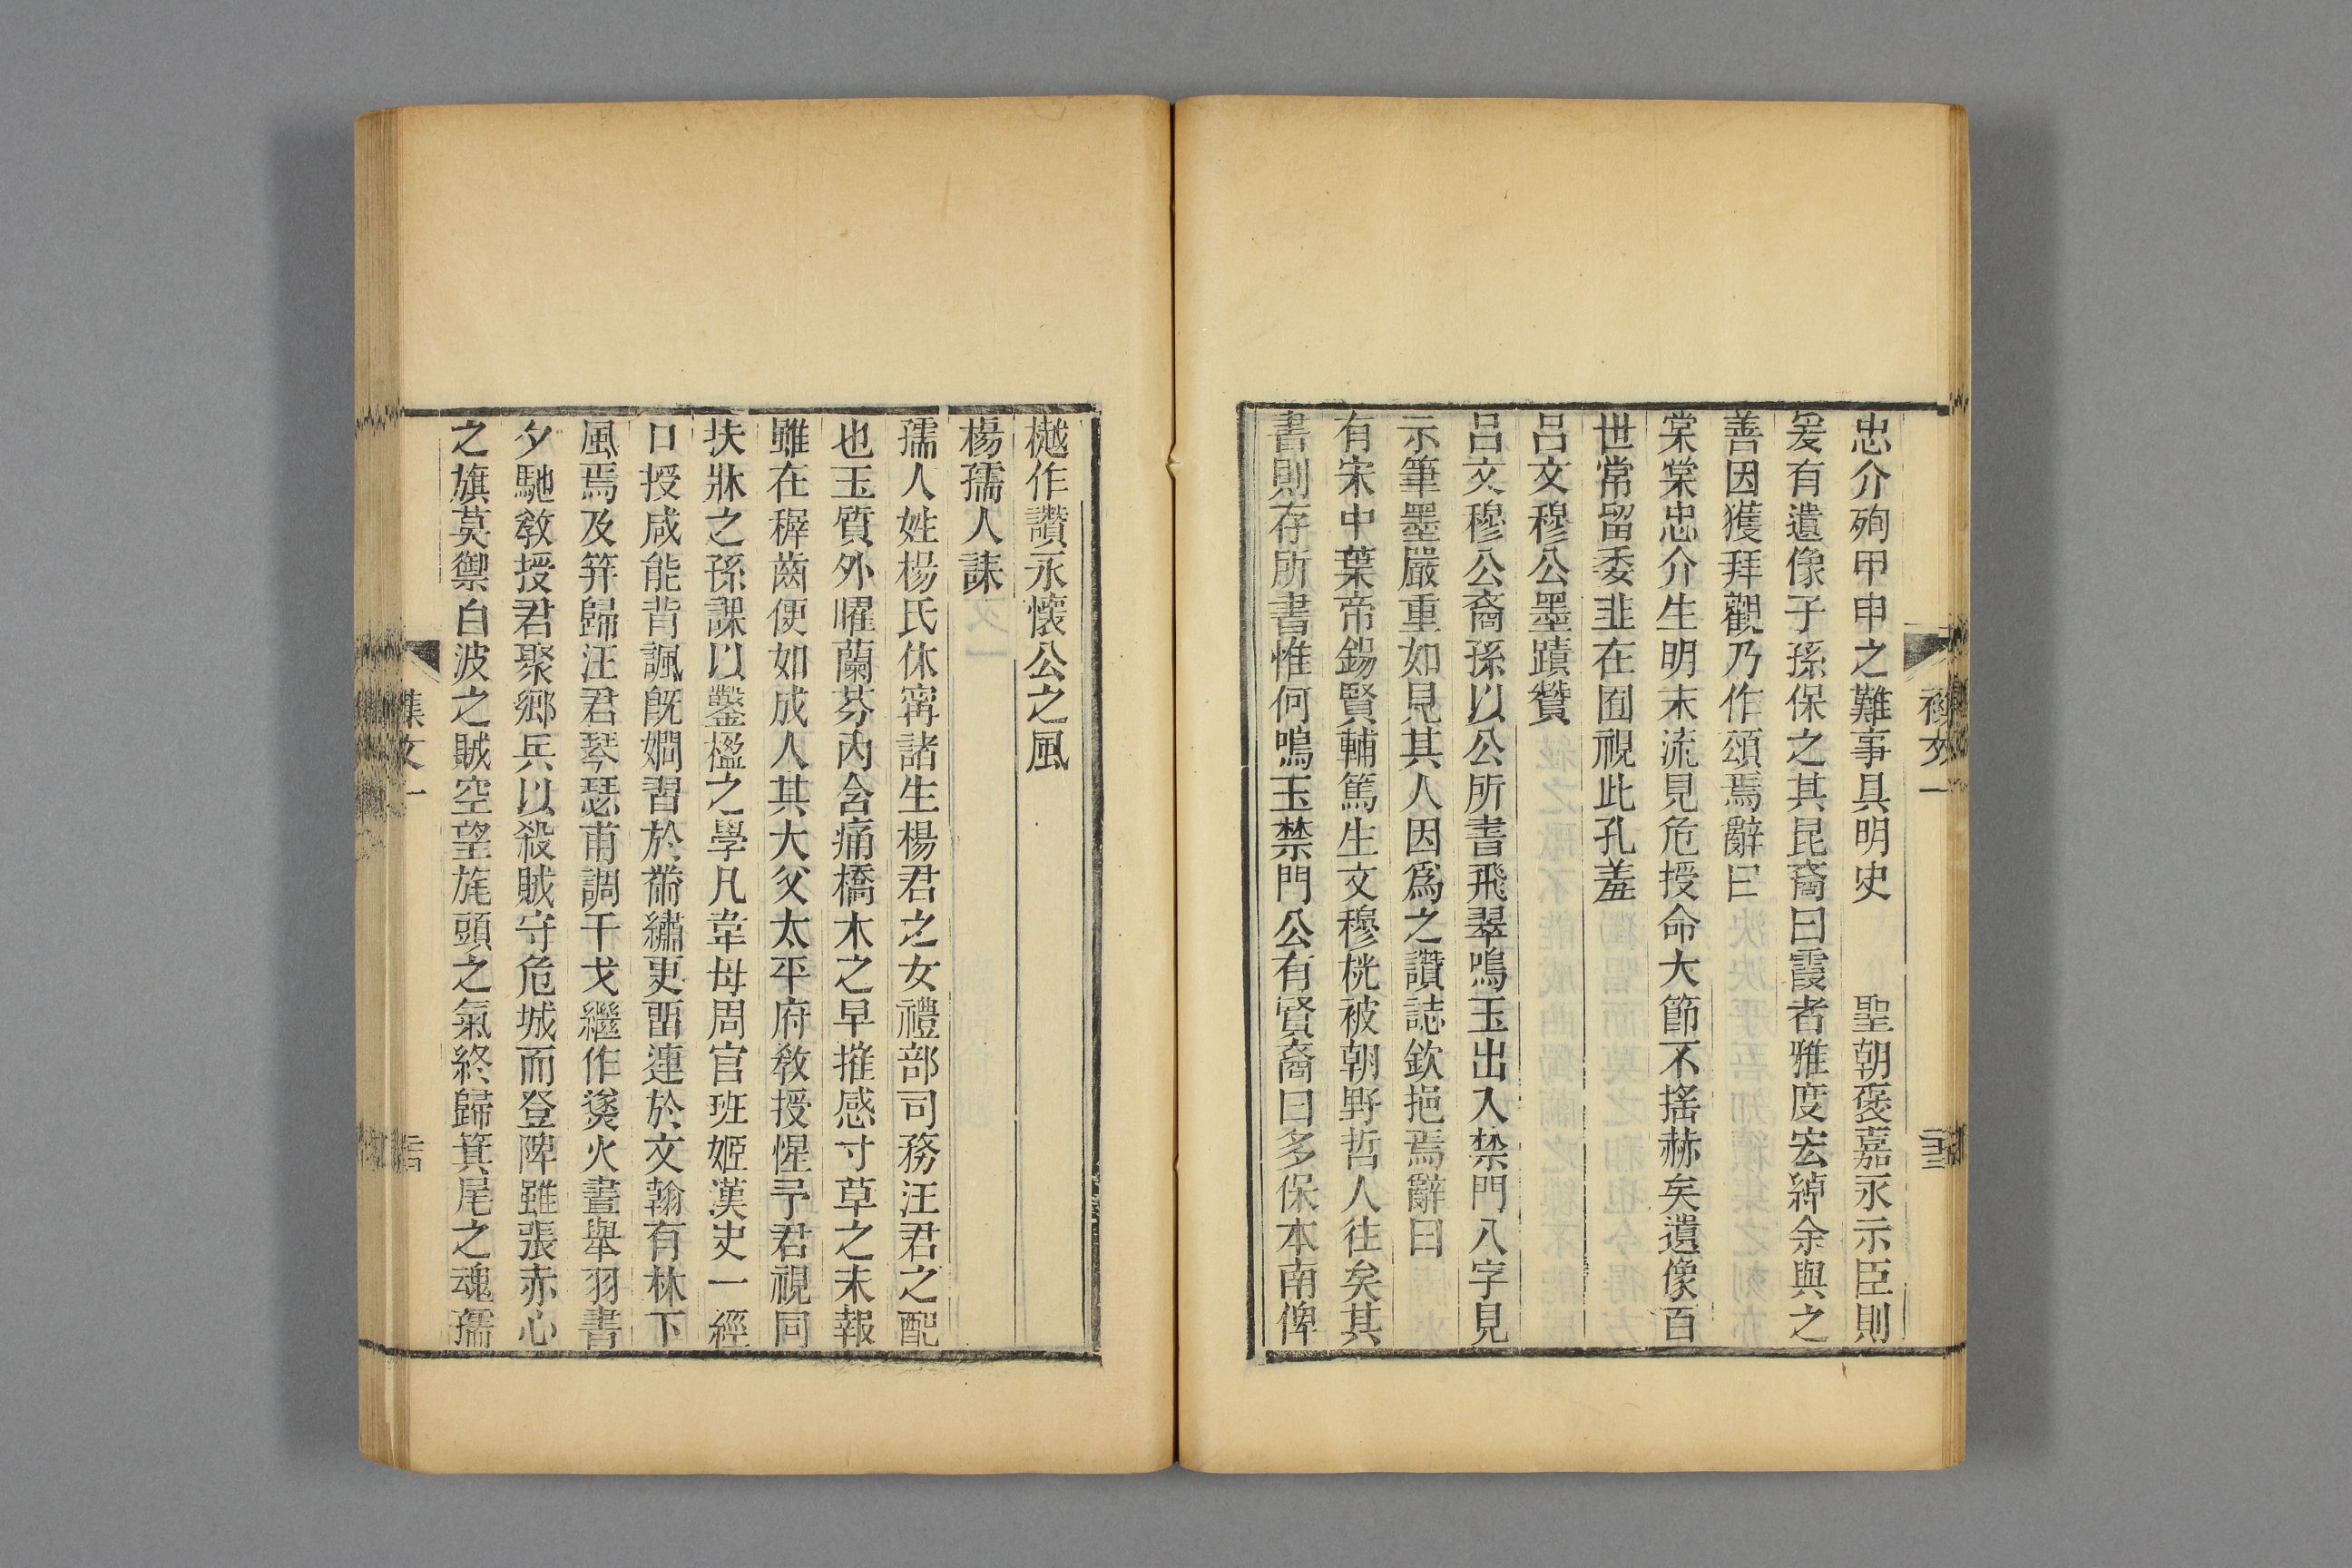 忠介殉甲申之難事具明史　聖朝褒嘉永示臣則
爰有遺像子孫保之其昆裔曰霞者雅度宏綽余與之
善因獲拜觀乃作頌焉辭曰
棠棠忠介生明末流見危授命大節不搖赫矣遺像百
世常留委韭在囿視此孔羞
呂文穆公墨蹟贊
呂文穆公裔孫以公所書飛翠鳴玉出入禁門八字見
示筆墨嚴重如見其人因爲之讚誌欽挹焉辭曰
有宋中葉帝錫賢輔篤生文穆桄被朝野哲人往矣其
書則存所書惟何鳴玉禁門公有賢裔曰多保本南俾
樾作讚永懷公之風
楊孺人誄
孺人姓楊氏休寗諸生楊君之女禮部司務汪君之配
也玉質外曜蘭芬內含痛橋木之早摧感寸草之未報
雖在穉齒便如成人其大父太平府敎授惺予君視同
扶牀之孫課以鑿楹之學凡韋母周官班姬漢史一經
口授咸能背諷旣嫺習於黹繡更畱連於文翰有林下
風焉及笄歸汪君琴瑟甫調干戈繼作燹火晝舉羽書
夕馳敎授君聚鄉兵以殺賊守危城而登陴雖張赤心
之旗莫禦白波之賊空望旄頭之氣終歸箕尾之魂孺